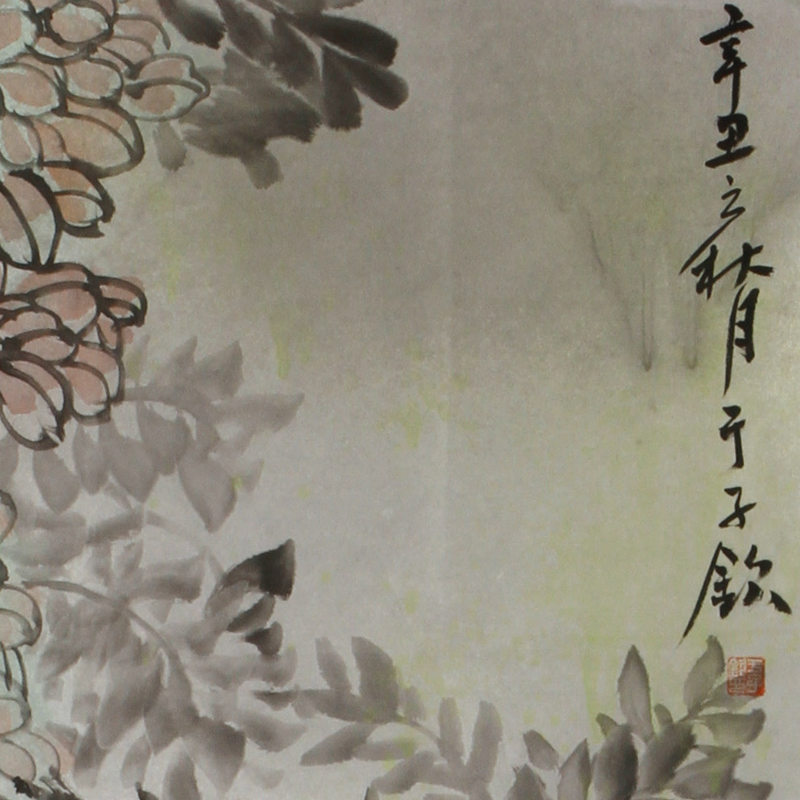 辛丑之秋月于子欽